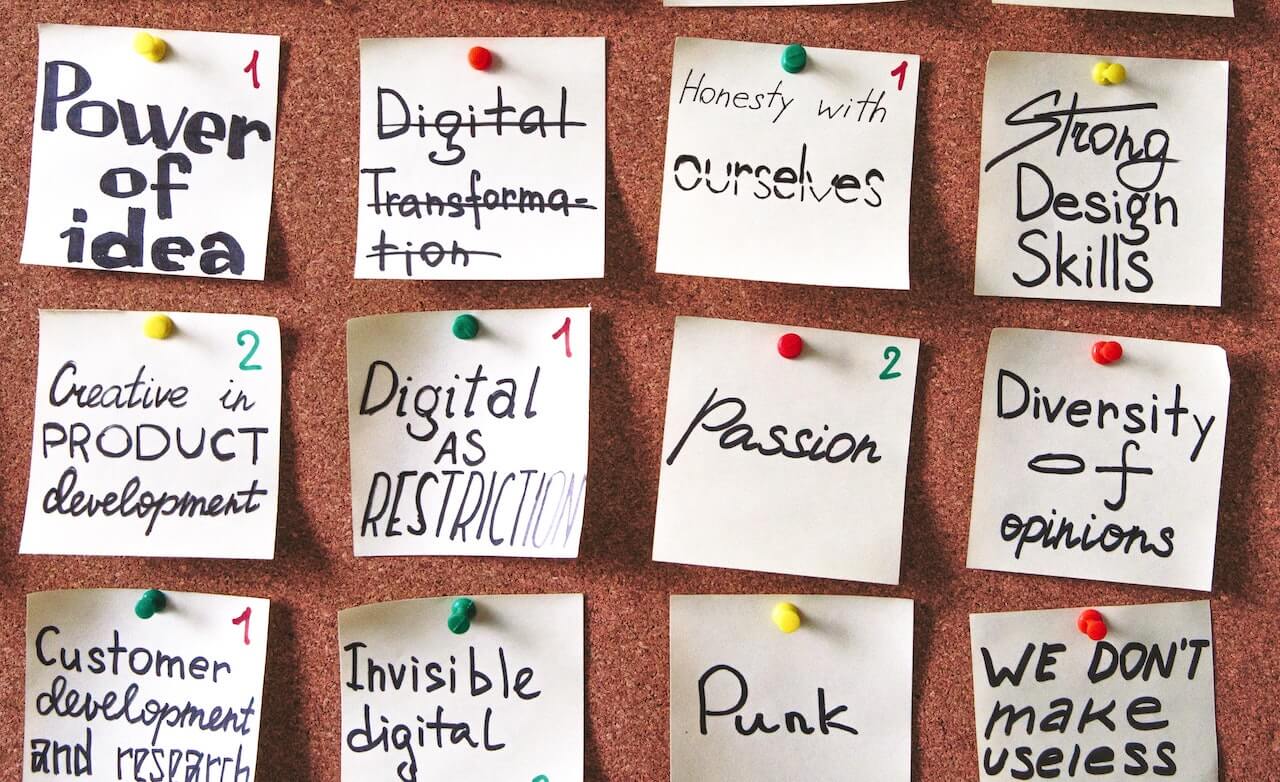 1
Power
of
idea
Digital
Transforma-
tion
1
Honesty with
ourselves
Strong
Design
Skills
2
Creative in
PRODUCT
development
1
Digital
AS
RESTRICTION
2
Passion
Diversity
of
opinions
1
Customer
development
and research
Invisible
digital
Punk
WE DON'T
make
useless